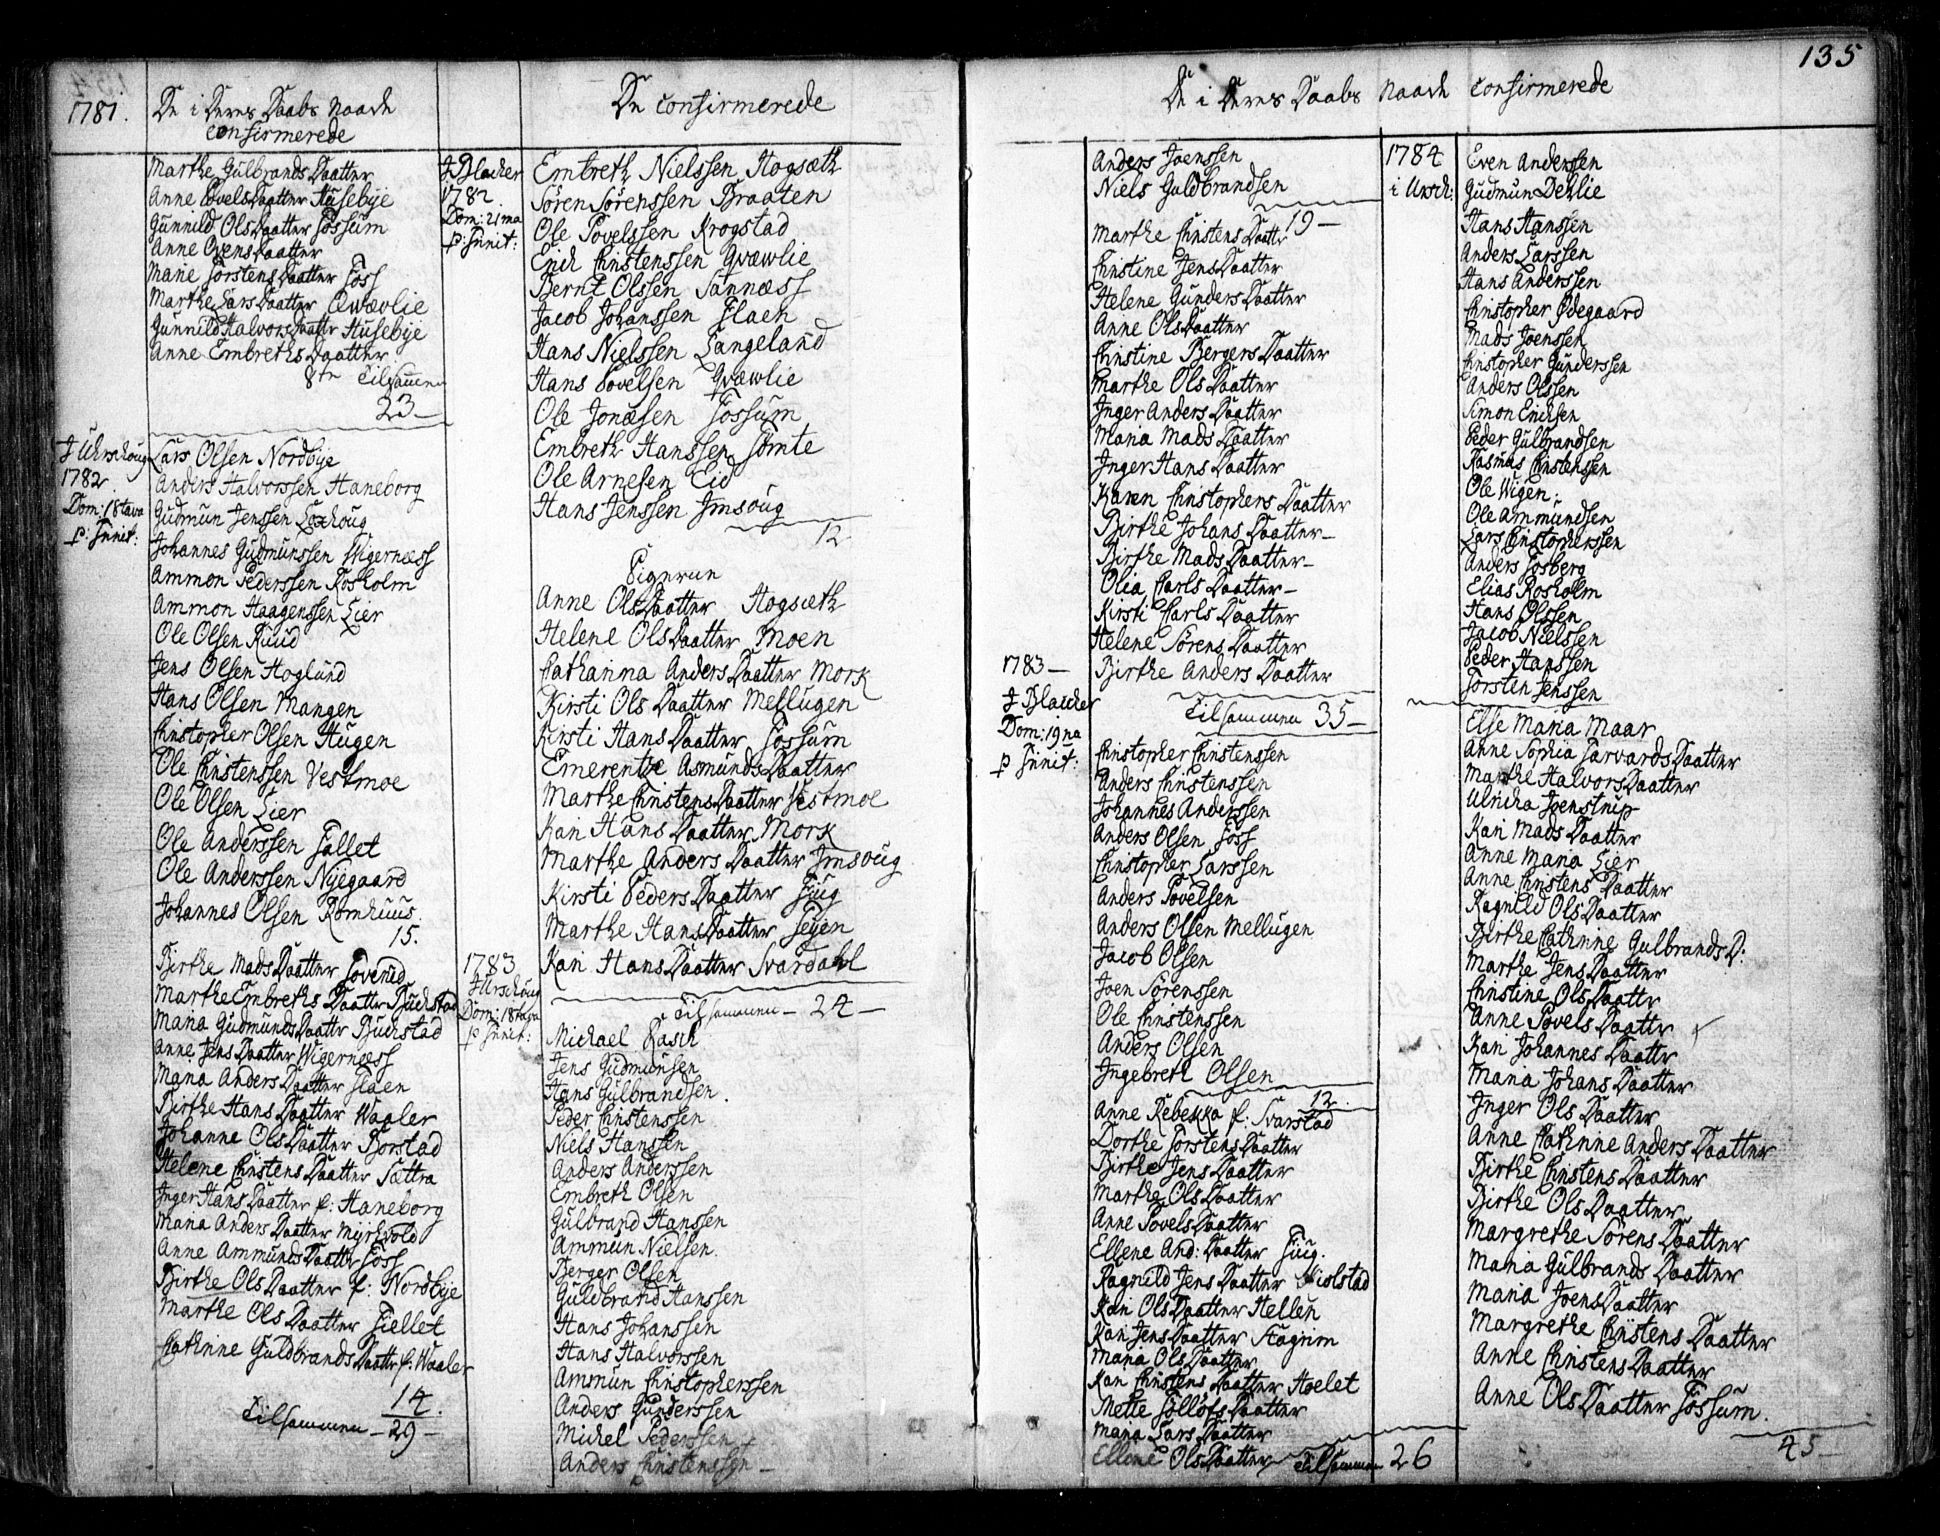 135
1781. De i Deres Daabs Naade
confirmerede
Marthe Gulbrands Daatter
Anne PovelsDaatter Husebÿe
Gunnild OlsDaatter Fossum
Anne OvensDaatter
Marie Torstens Daatter Foss
Marthe Lars Daatter Qvævlie
Gunnild Halvors Daattr Husebÿe
Anne Embreths Daatter
8te Tilsamen
23 —
I Uhrschoug
1782.
Dom: 18tava
p: Trinit:
Lars Olsen Nordbÿe
Anders Halvorssen Haneborg
Gudmun Jenssen Loxhoug
Johannes Gudmunssen Wigernæss
Ammon Pederssen Kosholm
Ammon Haagenssen Lier
Ole Olsen Ruud
Jens Olsen Hoglund
Hans Olsen Mangen
Christopher Olsen Haugen
Ole Christenssen Vestmoe
Ole Olsen Lier
Ole Anderssen Fallet
Ole Anderssen Nÿegaard
Johannes Olsen Romhuus.
15.
Birthe MadsDaatter
Marthe Embreths Daatter Buchstad
Maria Gudmunds Daattr Buchstad
Anne Jens Daatter Wigernæss
Maria Anders Daatter Flaen
Birthe Hans Daatter Waaler
Johanne Ols Daatter Bjorstad
Helene Christens Daatter Sættra
Inger Hans Daatter f: Haneborg
Maria Anders Daatter Myrhvold
Anne Ammunds Daatter Foss
Birthe Ols Daatter f: Nordbÿe
Marthe Ols Daatter Fiellet
Cathrine Guldbrands Daattr f: Waaler
14.
Tilsammen — 29 —
De confirmerede
I Blacher
1782.
Dom: 21ma
p: Trinit:
Embreth Nielssen Hogsæth
Sören Sörenssen Braaten
Ole Povelssen Krogstad
Erich Christenssen Qvævlie
Bernt Olssen Sannæss
Jacob Johanssen Flaen
Hans Nielssen Langeland
Hans Povelsen Qvævlie
Ole Jonæsen Fossum
Embreth Hanssen Tomte
Ole Arnesen Eid
Hans Jenssen Imsoug
12
Pigerne
Anne OlsDaatter Hogsæth
Helene Ols Daatter Moen
Catharina Anders Daatter Mork
Kirsti Ols Daatter Mellugen
Kirsti Hans Daatter Fossum
Emerentze Asmunds Daatter
Marthe Christens Daatter Vestmoe
Kari Hans Daatter Mork
Marthe Anders Daatter Imsoug
Kirsti Peders Daatter Fiug
Marthe Hans Daatter Teÿen
Kari Hans Daatter Svardahl
Tilsammen — 24 —
1783
I Urschoug
Dom: 18tava
p Trinit:
Michael Rasch
Jens Gudmunsen
Hans Gulbrandsen.
Peder Christenssen
Niels Hanssen
Anders Anderssen
Embreth Olsen
Gulbrand Hanssen
Ammun Nielsen.
Berger Olsen
Guldbrand Hanssen
Hans Johanssen
Hans Halvorssen
Amsmun Christopherssen
Anders Gunderssen
Michel Pederssen
Anders Christenssen —
De i Deres Daabs Naade confirmerede
Anders Joenssen
Niels Guldbrandsen
19 —
Marthe Christens Daattr
Christine Jens Daatter
Helene Gunders Daatter
Anne OlsDaatter
Christine Bergers Daatter
Marthe Ols Daatter
Inger Anders Daatter
Maria Mads Daatter
Inger Hans Daatter
Karen Christophers Daatter
Birthe Johans Daatter —
Birthe Mads Daatter —
Olia Carls Daatter —
Kirsti Carls Daatter
Helene Sørens Daatter
Birthe Anders Daatter
Tilsammen 35 —
1783 —
I Blacher
Dom: 19na
p Trinit:
Christopher Christenssen
Anders Christenssen
Johannes Anderssen
Anders Olssen Foss
Christopher Larssen
Anders Povelsen
Anders Olssen Mellugen
Jacob Olsen
Joen Sörenssen
Ole Christenssen
Anders Olsen
Ingebreth Olsen
12.
Anne Rebekka f: Svarstad
Dorthe Torstens Daatter
Birthe Jens Daatter
Marthe Ols Daatter
Anne Povels Daatter
Ellene And: Daatter Fiug.
Ragnild Jens Daatter
Kari Ols Daatter Hellen
Kari Jens Daatter Hagrim
Maria Ols Daatter
Kari Christens Daatter Hoelet
Mette Tollofs Daatter
Maria Lars Daatter
Ellene Ols Daatter Tilsammen 26
1784
i Ursch:
Even Anderssen
Gudmun Dehlie
Hans Hanssen
Anders Larssen
Hans Anderssen
Christopher Ødegaard
Mads Joenssen
Christopher Gunderssen
Anders Olssen
Simon Erichsen
Peder Gulbrandsen
Rasmus Christenssen
Ole Wigen.
Ole Ammundsen
Lars Christopherssen
Anders Fosberg
Elias Kosholm
Hans Olssen
Jacob Nielssen
Peder Hanssen
Torsten Jenssen
Else Maria Maar
Anne Sophia TarvardsDaatter
Marthe Halvors Daatter
Ulricha Joenstrup
Kari Mads Daatter
Anne Maria Lier
Anne Christens Daatter
Ragnild Ols Daatter
Birthe Cathrine Gulbrands D:
Marthe Jens Daatter
Christine Ols Daattr
Anne Povels Daattr
Kari Johannes Daattr
Maria Johans Daatter
Inger Ols Daatter
Anne Cathrine Anders Daatter
Birthe Christens Daatter
Birthe Ols Daatter
Margrethe Sörens Daatter
Maria Gulbrands Daatter
Maria Joens Daatter
Margrethe Christens Daatter
Anne Christens Daatter
Anne Ols Daatter Fossum.
45